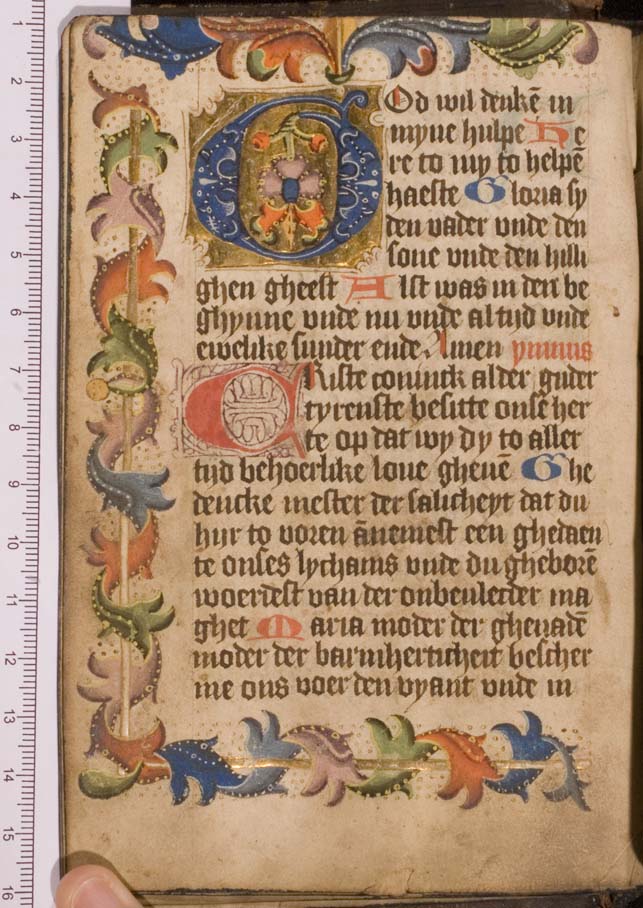 God wil denkē in
myne hulpe He
re to my to helpē
haeste Gloria sy
den vader vnde den
sone vnde den hilli
ghen gheest Alst was in den be
ghynne vnde nu vnde altyd vnde
ewelike sunder ende Amen ymnus
Criste coninck alder guder
tyrenste besitte onse her
te op dat wy dy to aller
tyd behoerlike loue gheuē Ghe
dencke mester der salicheyt dat du
hyr to voren ānemest een ghedaen
te onses lychams vnde du gheborē
woerdest van der onbeulecter ma
ghet Maria moder der ghenadē
moder der barmherticheit bescher
me ons voer den vyant vnde in
1
2
3
4
5
6
7
8
9
10
11
12
13
14
15
16